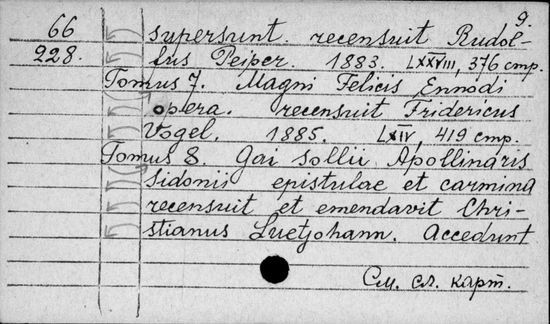 9.
66 supersunt. recensuit Rudol-
228. fus Peiper. 1883. LXXVIII, 376 стр.
Tomus 7. Magni Felicis Ennodi
opera. recensuit Fridericus
Vogel. 1885. LXIV, 419 стр.
Tomus 8. Gai Sollii Apollinaris
Sidonii epistulae et carmina
recensuit et emendavit Chri-
stianus Luetjohann. Accedunt
См. сл. карт.